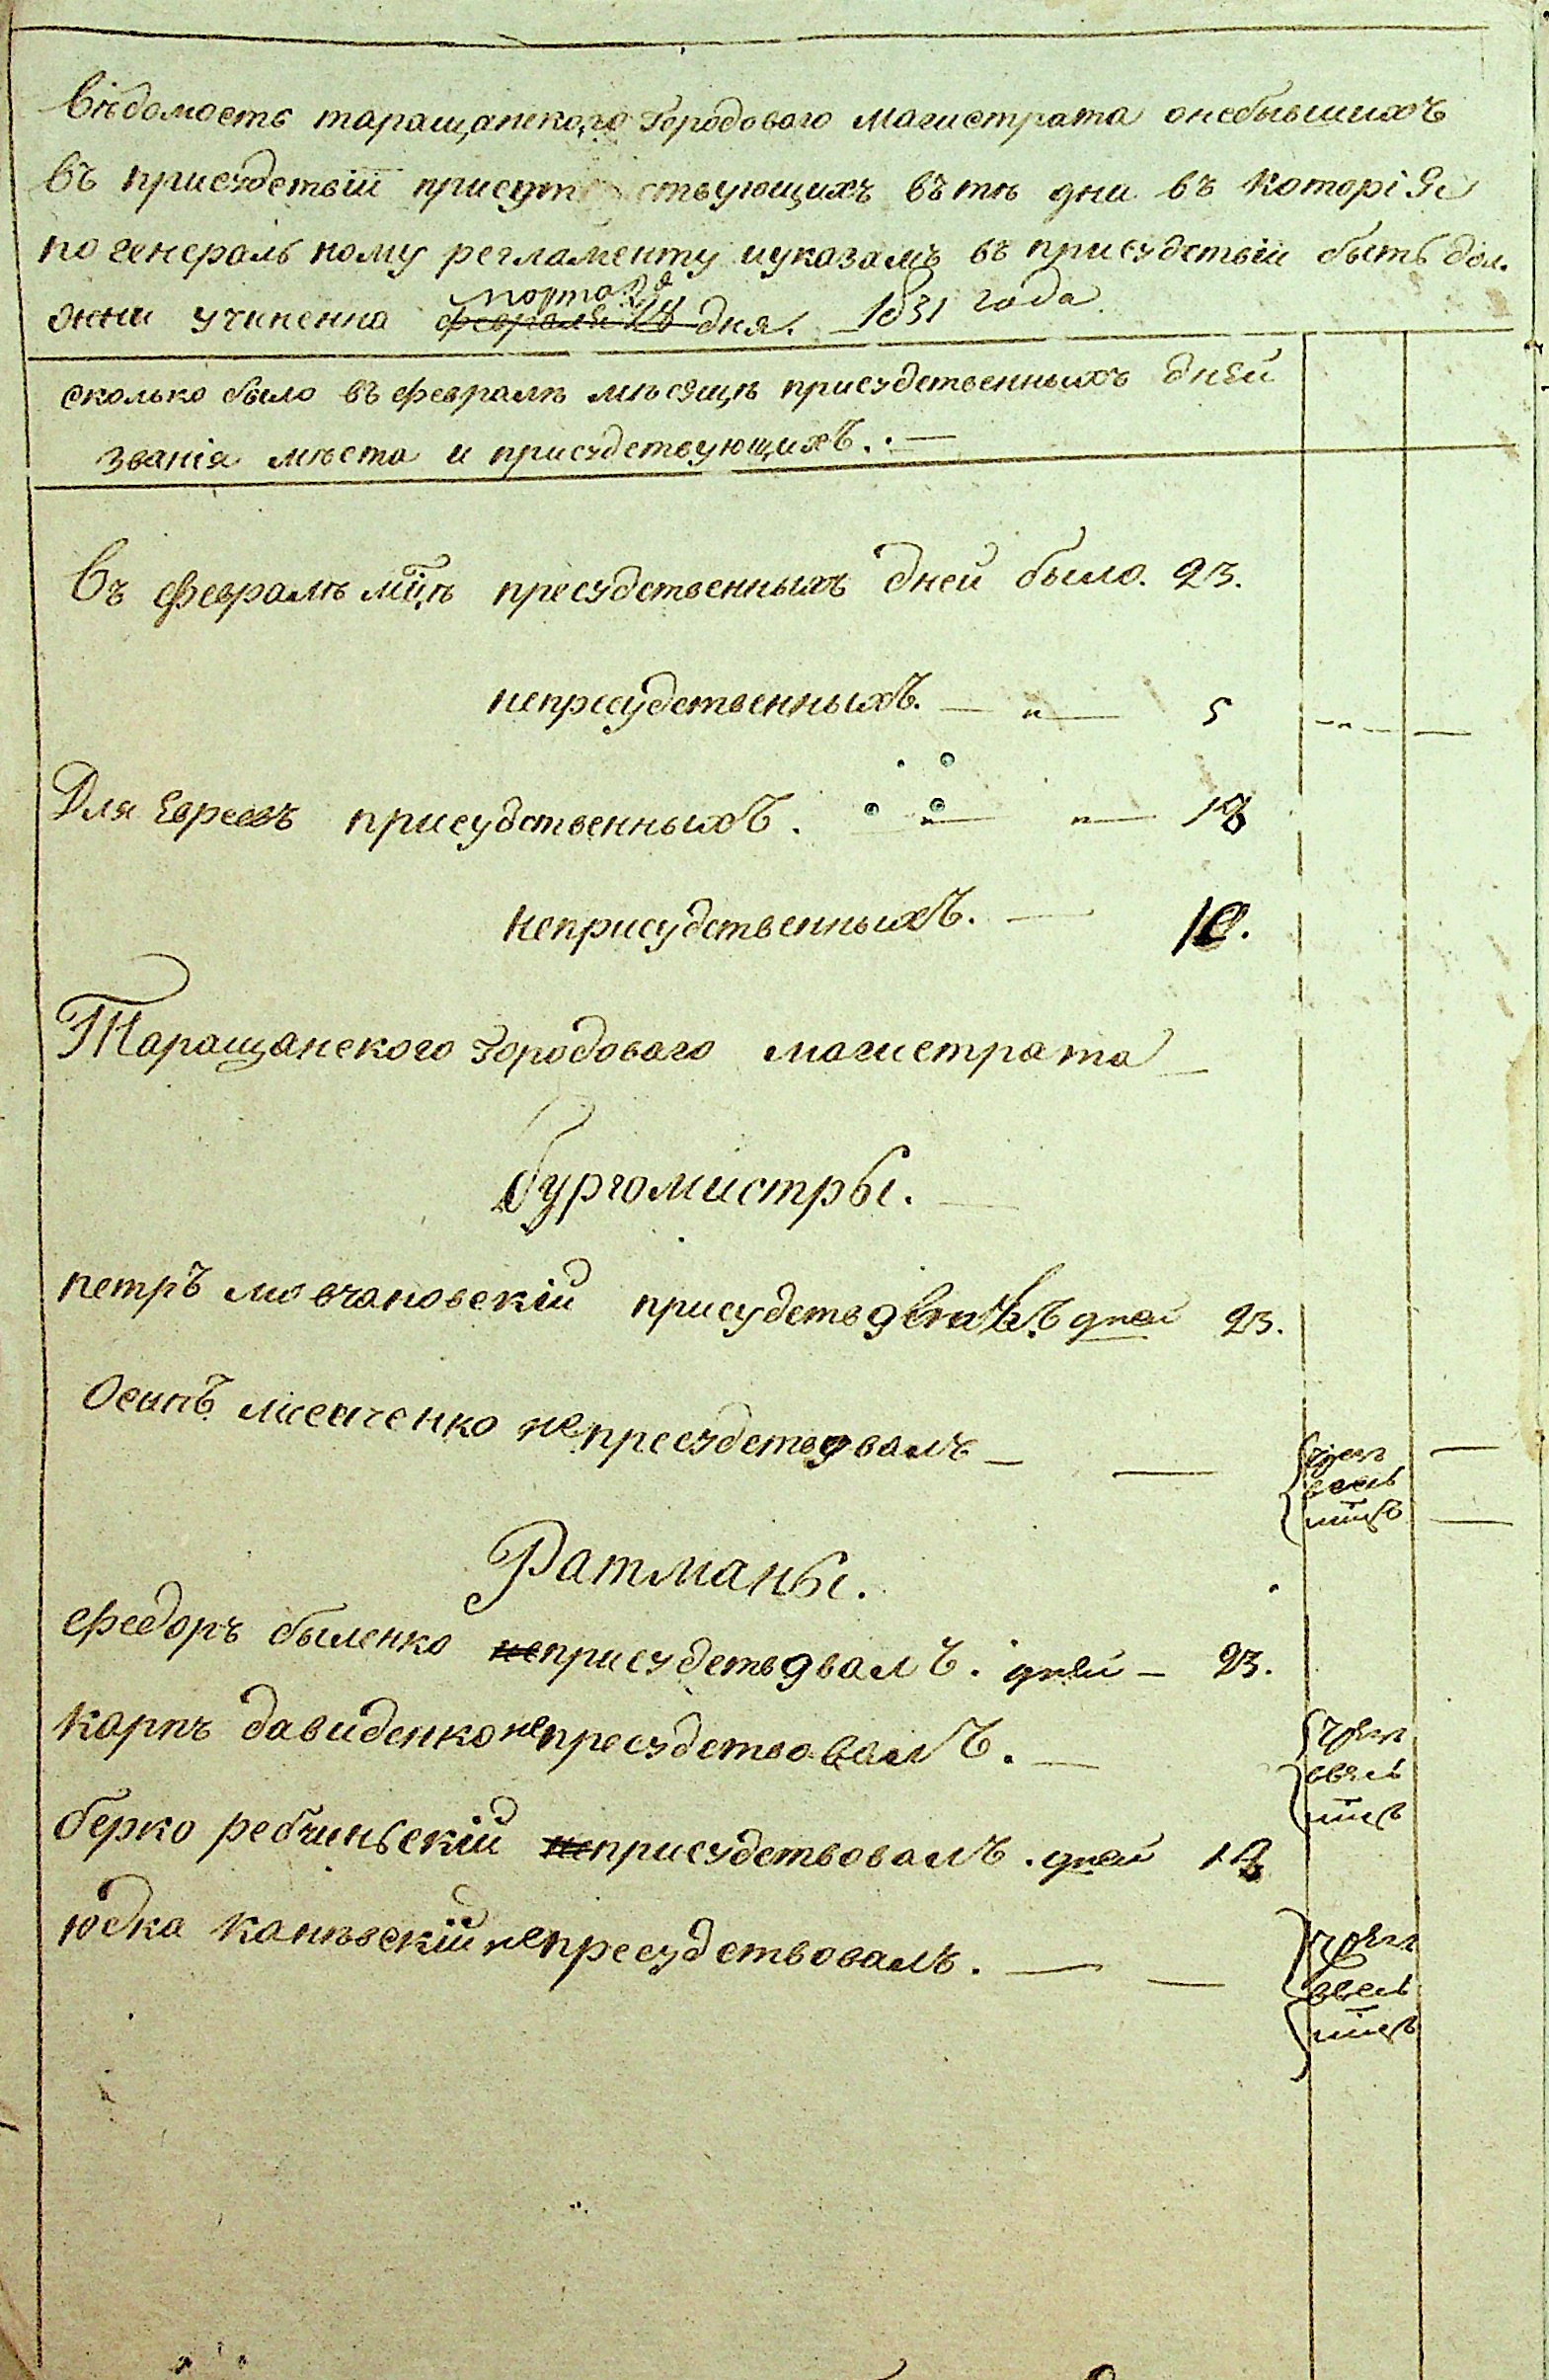 Вѣдомость таращанского Городоваго магистрата онебывшихъ
въ присудствіи присутствующихъ вътѣ дни въ которіе
по генеральному регламенту иуказамъ въ присудствіи быть дол.
жни учиненна февраля 28 дня. 1831 года.
марта 2д
сколько было въ февралѣ мѣсяцѣ присудственныхъ дней
званія мѣста и присудствующихъ.
Въ февралѣ мцѣ пресудственныхъ дней было. 23.
непресудственныхъ. 5
Для Евреевъ присудственныхъ. 18
неприсудственныхъ. 10.
Таращанского Городоваго магистрата
Бургомистры.
петръ мовчановскій присудств дней 23.
Осипъ лисиченко не пресудствовалъ
чрезъ
весь
мцъ
Ратманы.
федоръ быленко неприсудствовалъ. дней 23.
карпъ давиденко не пресудствовалъ.
чрезъ
весь
мцъ
берко ребчиньскій неприсудствовалъ. дней 18
юдка каневскій не пресудствовалъ.
чрезъ
весь
мцъ